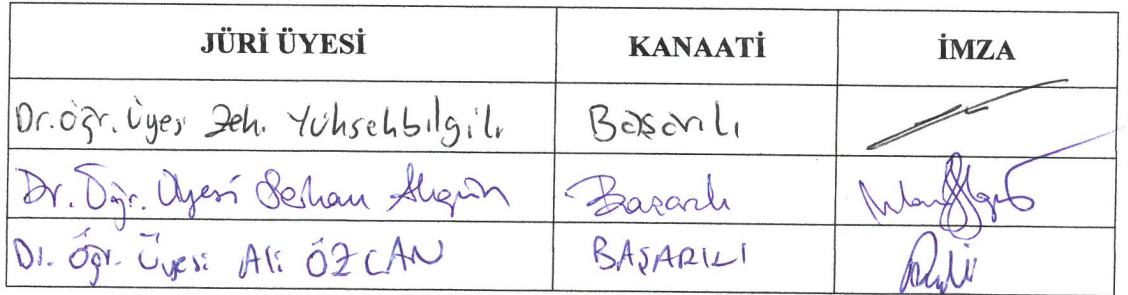 JÜRİ ÜYESİ KANAATİ İMZA
Dr. Öğr. Üyesi Zeh. Yükselbilgili Başarılı
Dr. Öğr. Üyesi Serhan Başarılı
Dr. Öğr. Üyesi Ali ÖZCAN BAŞARILI